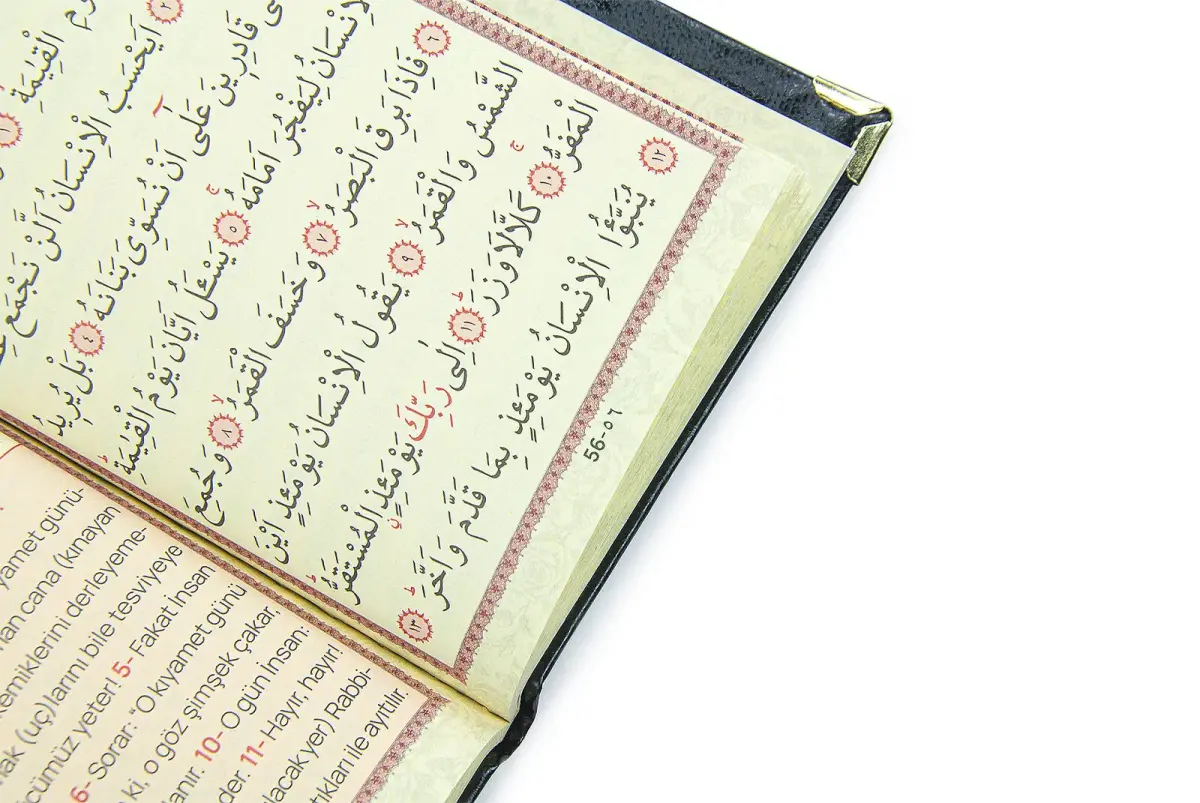 الْقِيٰمَةِ ١
٢ اَيَحْسَبُ الْاِنْسَانُ اَلَّنْ نَجْمَعَ
قَادِرِينَ عَلٰٓى اَنْ نُسَوِّىَ بَنَانَهُ ٤ بَلْ يُرِيدُ
الْاِنْسَانُ لِيَفْجُرَ اَمَامَهُ ٥ يَسْـَٔلُ اَيَّانَ يَوْمُ الْقِيٰمَةِ
٦ فَاِذَا بَرِقَ الْبَصَرُ ٧ وَخَسَفَ الْقَمَرُ ٨ وَجُمِعَ
الشَّمْسُ وَالْقَمَرُ ٩ يَقُولُ الْاِنْسَانُ يَوْمَئِذٍ اَيْنَ
الْمَفَرُّ ١٠ كَلَّا لَا وَزَرَ ١١ اِلٰى رَبِّكَ يَوْمَئِذٍ الْمُسْتَقَرُّ
١٢ يُنَبَّؤُا الْاِنْسَانُ يَوْمَئِذٍ بِمَا قَدَّمَ وَاَخَّرَ ١٣
56-٥٦
yamet günü-
cana (kınayan
kemiklerini derleyeme-
(uç)larını bile tesviyeye
yeter! 5- Fakat İnsan
6- Sorar: "O kıyamet günü
ki, o göz şimşek çakar,
10- O gün İnsan:
der. 11- Hayır, hayır!
yer) Rabbi-
ile ayıtılır.